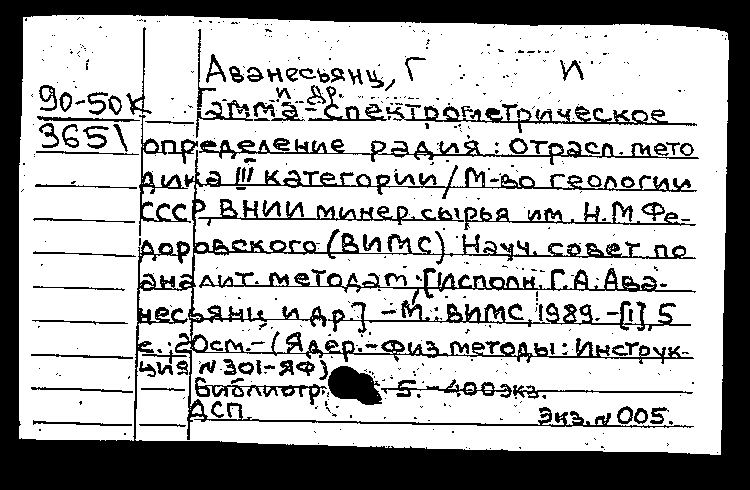 Аванесьянц, Г И
и др.
90-50к Гамма-спектрометрическое
3651 определение радия: Отрасл. мето
дика III категории / М-во геологии
СССР, ВНИИ минер. сырья им. Н.М.Фе-
доровского (ВИМС). Науч. совет по
аналит. методам; [Исполн. Г.А. Ава-
несьянц и др.] - М.: ВИМС, 1989. - [1], 5
с.; 20см. - (Ядер.-физ методы: Инструк-
ция N 301-ЯФ)
Библиогр. 5. - 400экз.
ДСП. Экз. N 005.